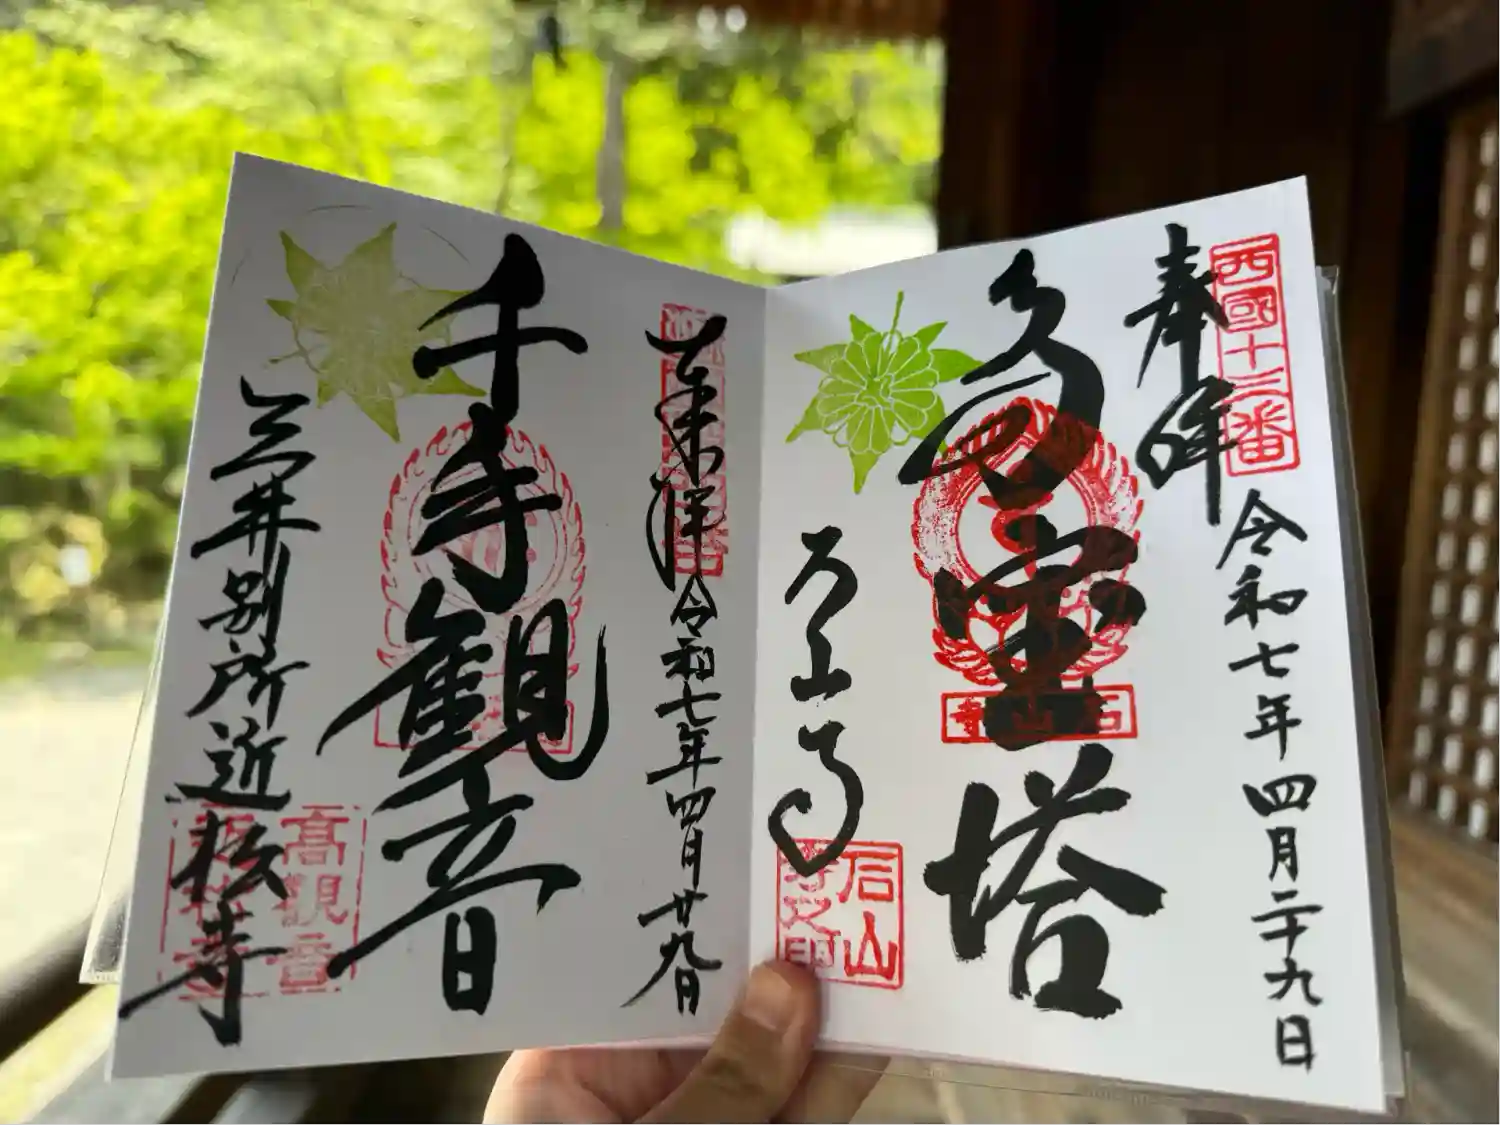 西國十三番
奉拝
令和七年四月二十九日
多宝塔
石山寺
石山寺
石山寺之印
奉拝
令和七年四月廿九日
千手観音
三井別所近松寺
高観音
近松寺